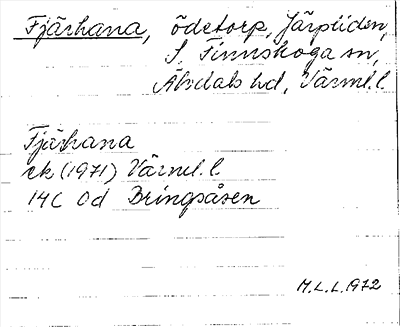 Fjärhana, ödetorp, Järpliden,
S. Finnskoga sn,
Älvdals hd, Värml. l.
Fjärhana
ek (1971) Värml. l.
14C 0d Bringsåsen
M.L.L. 1972